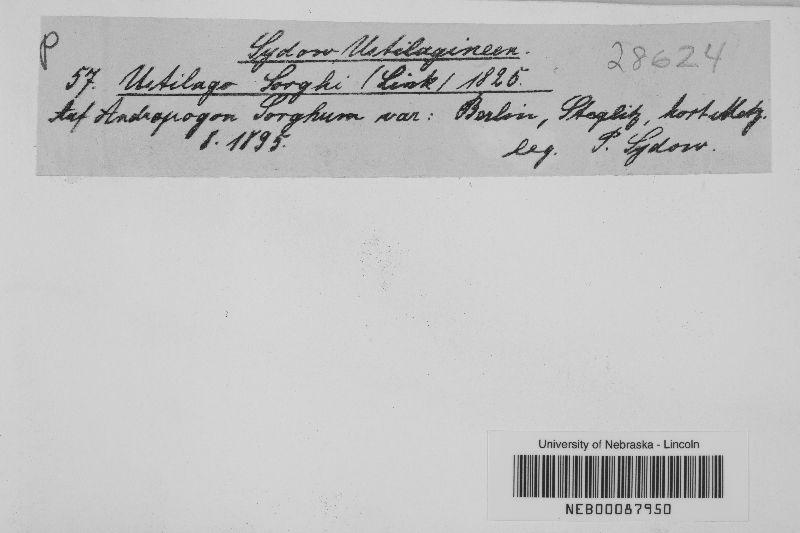 P
Sydow Ustilagineen.
28624
57. Ustilago Sorghi (Link) 1825.
Auf Andropogon Sorghum var: Berlin, Steglitz, hort. Metz.
8. 1895. leg. P. Sydow.
University of Nebraska - Lincoln
NEB00087950